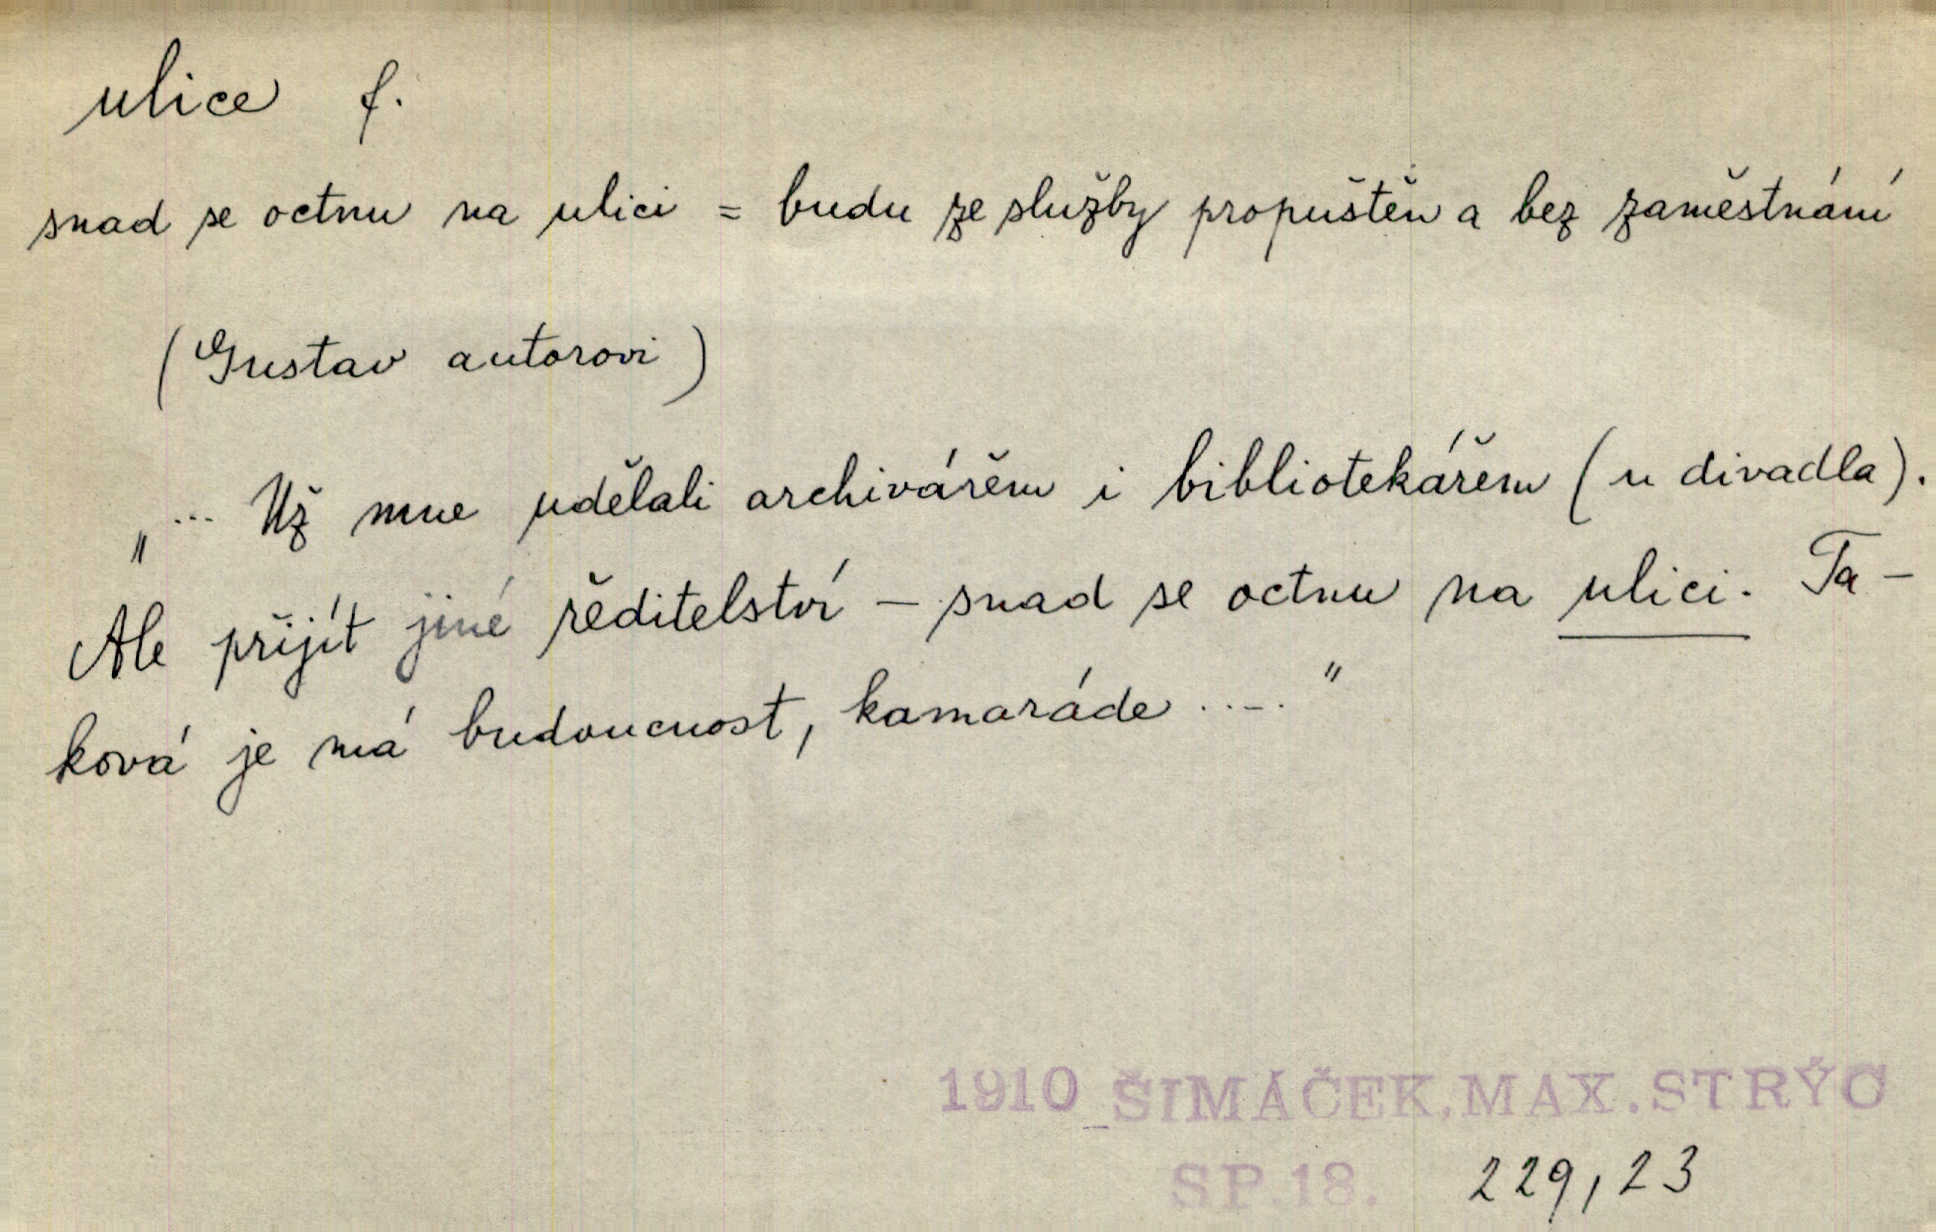 ulice f.
snad se octnu na ulici = budu ze služby propuštěn a bez zaměstnání
(Gustav autorovi)
„... Už mne udělali archivářem i bibliotekářem (u divadla).
Ale přijít jiné ředitelství – snad se octnu na ulici. Ta-
ková je má budoucnost, kamaráde ....."
1910 ŠIMÁČEK.MAX.STRÝC
SP.18. 229,23